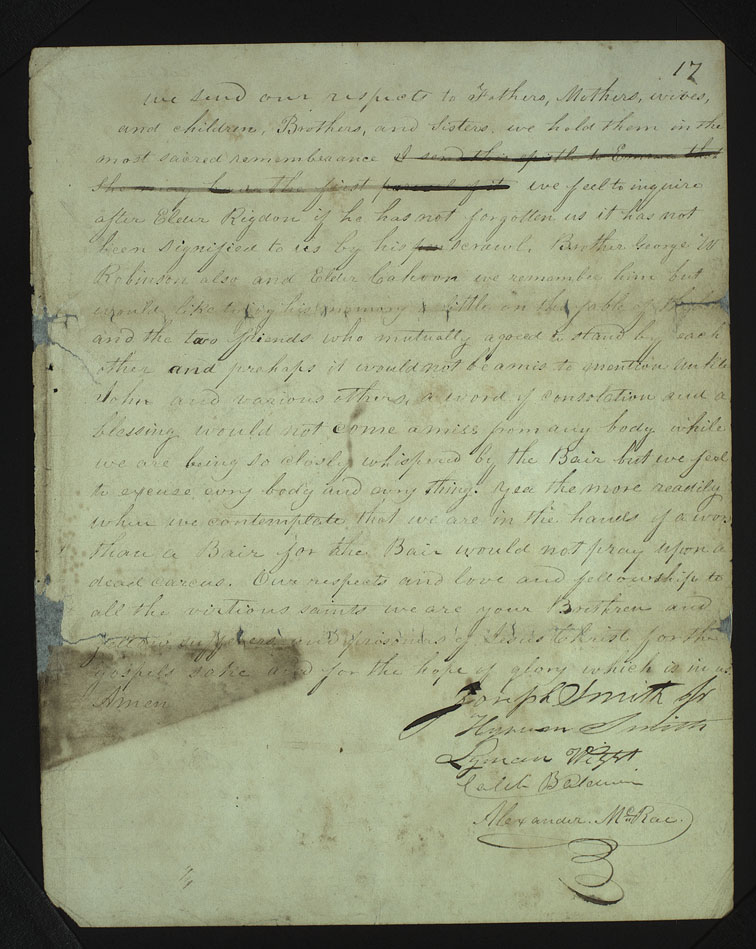 17
we send our respects to Fathers, Mothers, wives,
and children, Brothers, and Sisters. we hold them in the
most sacred remembraance I send this epistle to Emma that
she may have the first perusal of it we feel to inquire
after Elder Rigdon if he has not forgotten us it has not
been signified to us by his scrawl. Brother George W
Robinson also and Elder Cahoon we remember him but
would like to jog his memory a little on the fable of
and the two friends who mutually agreed to stand by each
other and prehaps it would not be amis to mention
John and various others, a word of consolation and a
blessing would not come amiss from any body while
we are being so closly whispred by the Bair but we feel
to excuse evry body and evry thing. yea the more readily
when we contemplate that we are in the hands of a wors
than a Bair for the Bair would not pray upon a
dead carcus. Our respects and love and fellowship to
all the virtious saints we are your Brethren and
fellow sufferers and prisoners of Jesus Christ for the
gospels sake and for the hope of glory which is in us.
Amen
Joseph Smith Jr
Hyrum Smith
Lyman Wight
Caleb Baldwin
Alexander. McRae.